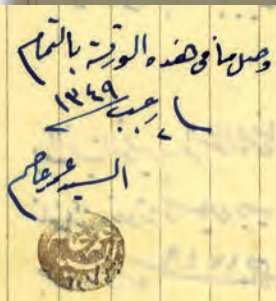 وصل ما في هذه الورقة بالتمام
رجب ١٣٤٩
السيد عمر عاصم